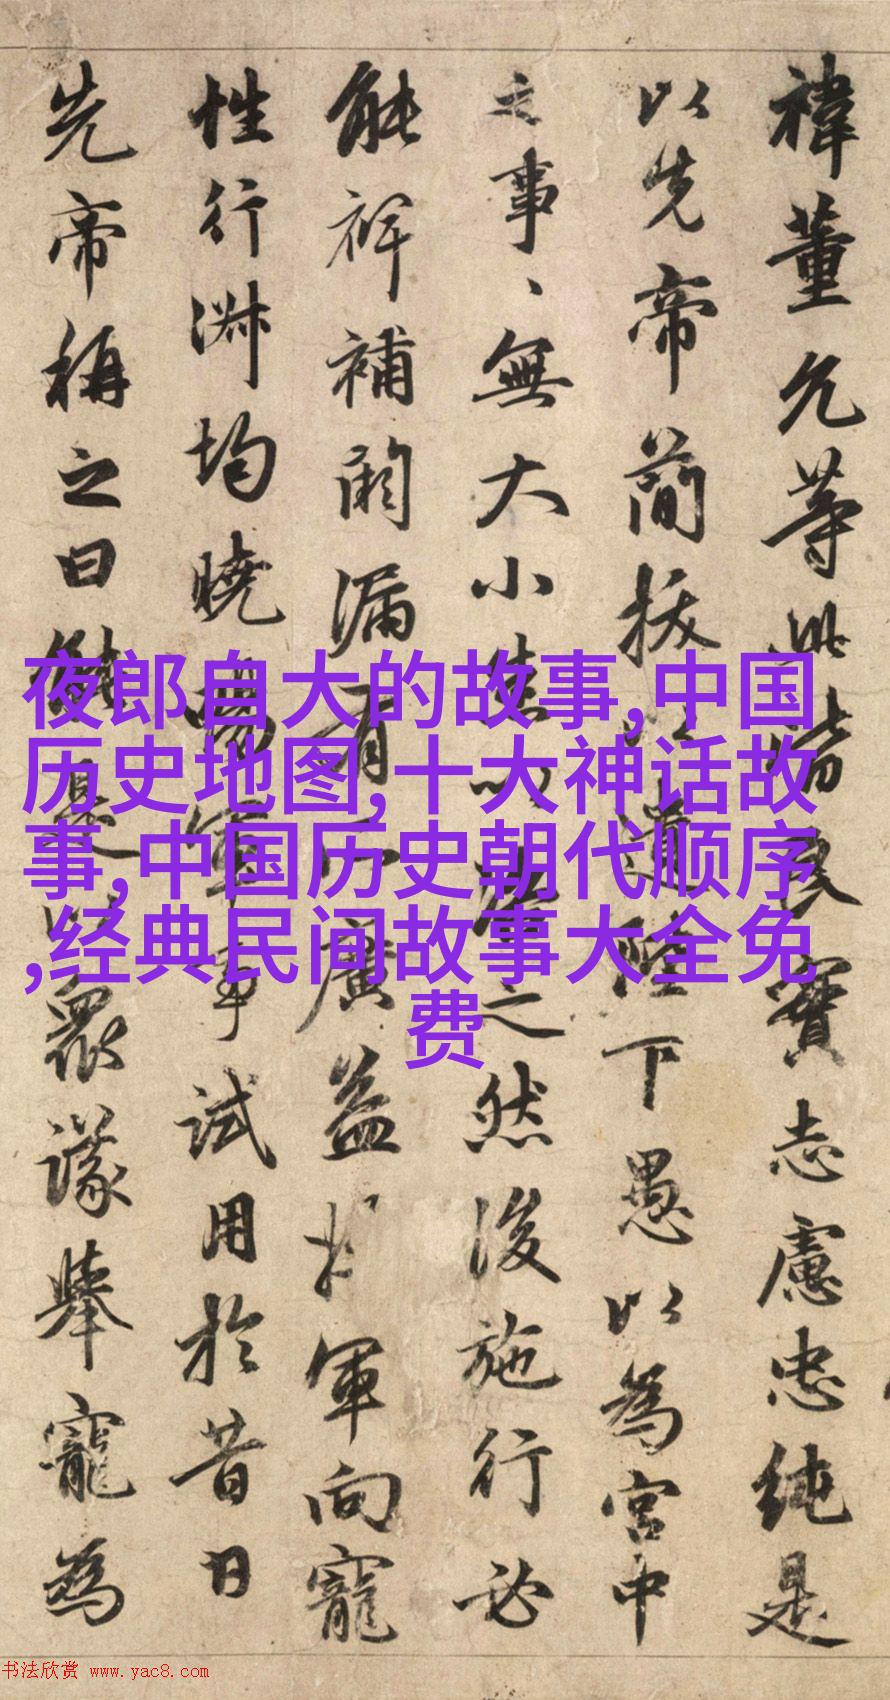 禕董允等此皆良實志慮忠純是
以先帝簡拔以遺陛下愚以為宮中
之事、無大小悉以咨之然後施行必
能裨補闕漏有所廣益將軍向寵
性行淋均曉暢軍事試用於昔日
先帝稱之曰能是以衆議舉寵為
夜郎自大的故事,中国
历史地图,十大神话故
事,中国历史朝代顺序
,经典民间故事大全免
费
书法欣赏 www.yac8.com